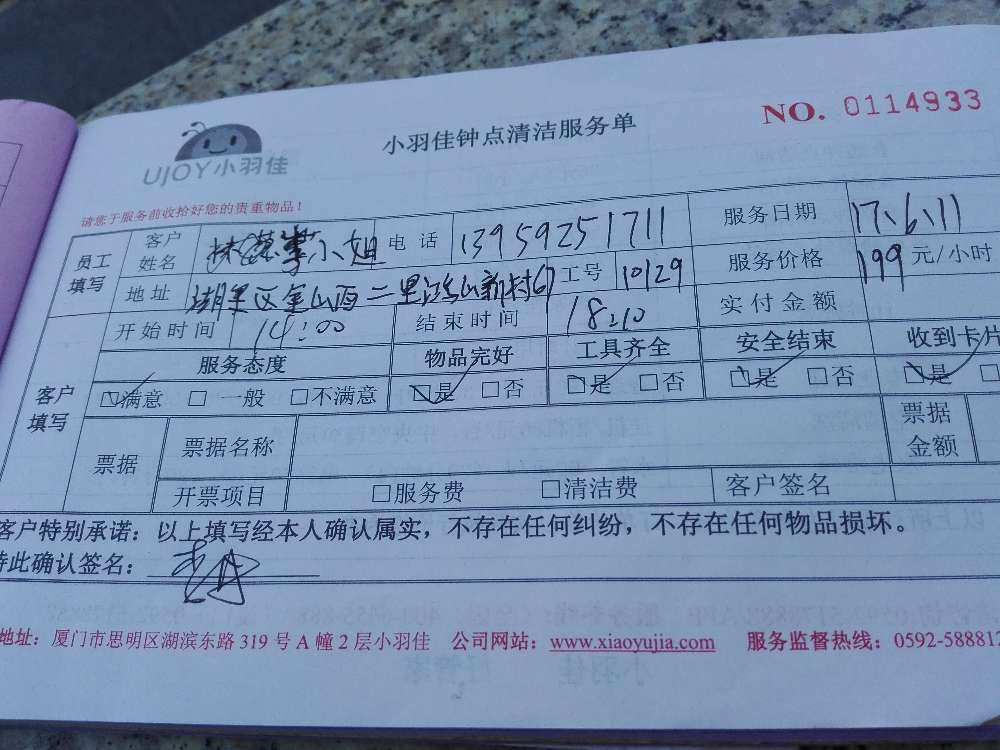 NO. 0114933
小羽佳钟点清洁服务单
UJOY小羽佳
请您于服务前收拾好您的贵重物品！
员工填写 客户姓名 小姐 电话 13959251711 服务日期 17、6、11
地址 湖里区金山西二里 新村67 工号 10129 服务价格 199 元/小时
客户填写 开始时间 14:00 结束时间 18:10 实付金额
服务态度 物品完好 工具齐全 安全结束 收到卡片
□满意 □一般 □不满意 □是 □否 □是 □否 □是 □否 □是 □
票据 票据名称 票据金额
开票项目 □服务费 □清洁费 客户签名
客户特别承诺：以上填写经本人确认属实，不存在任何纠纷，不存在任何物品损坏。
特此确认签名：
地址：厦门市思明区湖滨东路 319 号 A 幢 2 层小羽佳 公司网站：www.xiaoyujia.com 服务监督热线：0592-588812